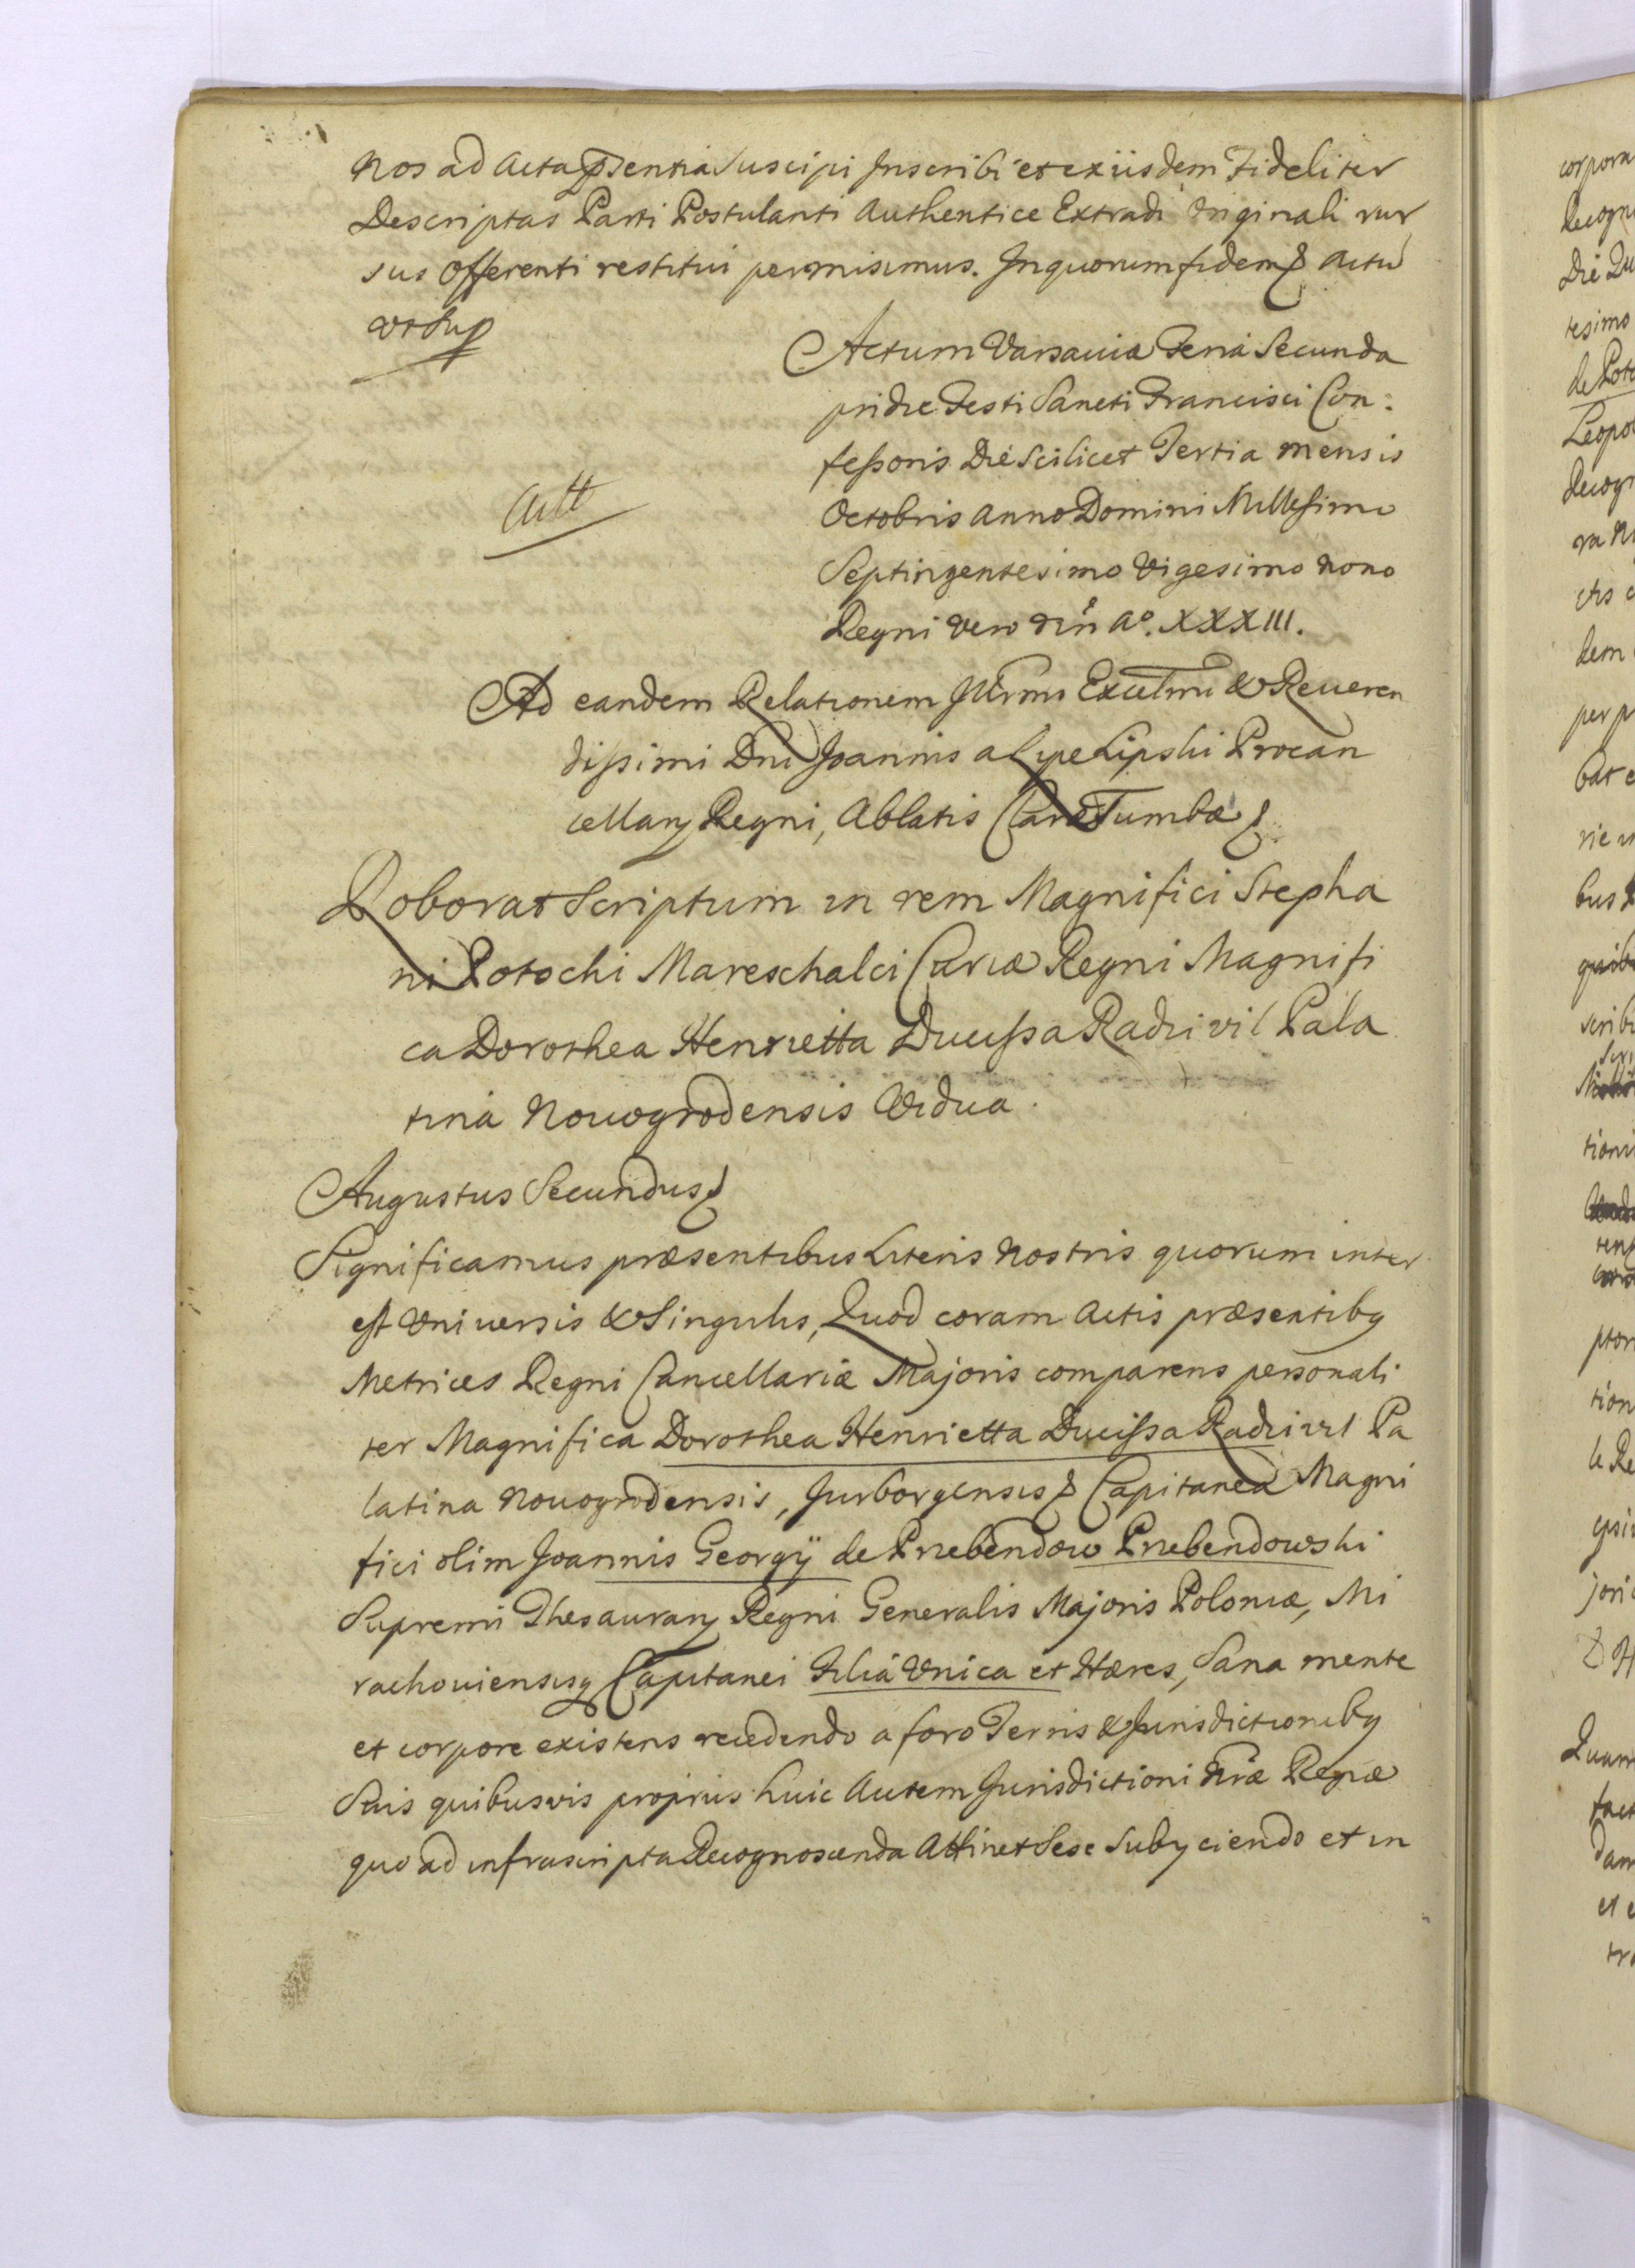 Nos ad Acta pñsentia Suscipi Inscribi et exiisdem Fideliter
Descriptas Parti Postulanti Authentice Extradi Originali rur
sus Offerenti restitui permisimus. In quorum fidem & Actu
ut Sup
Actum Varsaviæ Feria Secunda
pridie Festi Sancti Francisci Con:
feßoris Die Scilicet Tertia mensis
Octobris Anno Domini Millesimo
Septingentesimo Vigesimo Nono
Regni vero Nri Aº. XXXIII.
Actt
Ad eandem Relationem Illrmi Excellmi & Reueren
dißimi Dni Joannis a Lipe Lipski Procan
cellarij Regni, Abbatis Claræ Tumbæ &
Roborat Scriptum in rem Magnifici Stepha
ni Potocki Mareschalci Curiæ Regni Magnifi
ca Dorothea Henrietta Ducißa Radzivil Pala
tina Nouogrodensis Vidua.
Augustus Secundus &
Significamus præsentibus Literis Nostris quorum inter
est Vniuersis & Singulis, Quod coram Actis præsentibg
Metrices Regni Cancellariæ Majoris comparens personali
ter Magnifica Dorothea Henrietta Ducißa Radzivil Pa
latina Nouogrodensis, Jurborgensis & Capitanea Magni
fici olim Joannis Georgij de Przebendow Przebendowski
Supremi Thesaurarij Regni Generalis Majoris Poloniæ, Mi
rachouiensisq Capitanei Filia Vnica et Hæres, Sana mente
et corpore existens recedendo a foro Terris & Jurisdictionibg
Suis quibusvis proprijs huic Autem Jurisdictioni Nræ Regiæ
quo ad infrascripta Recognoscenda Attinet Sese Subijciendo et in